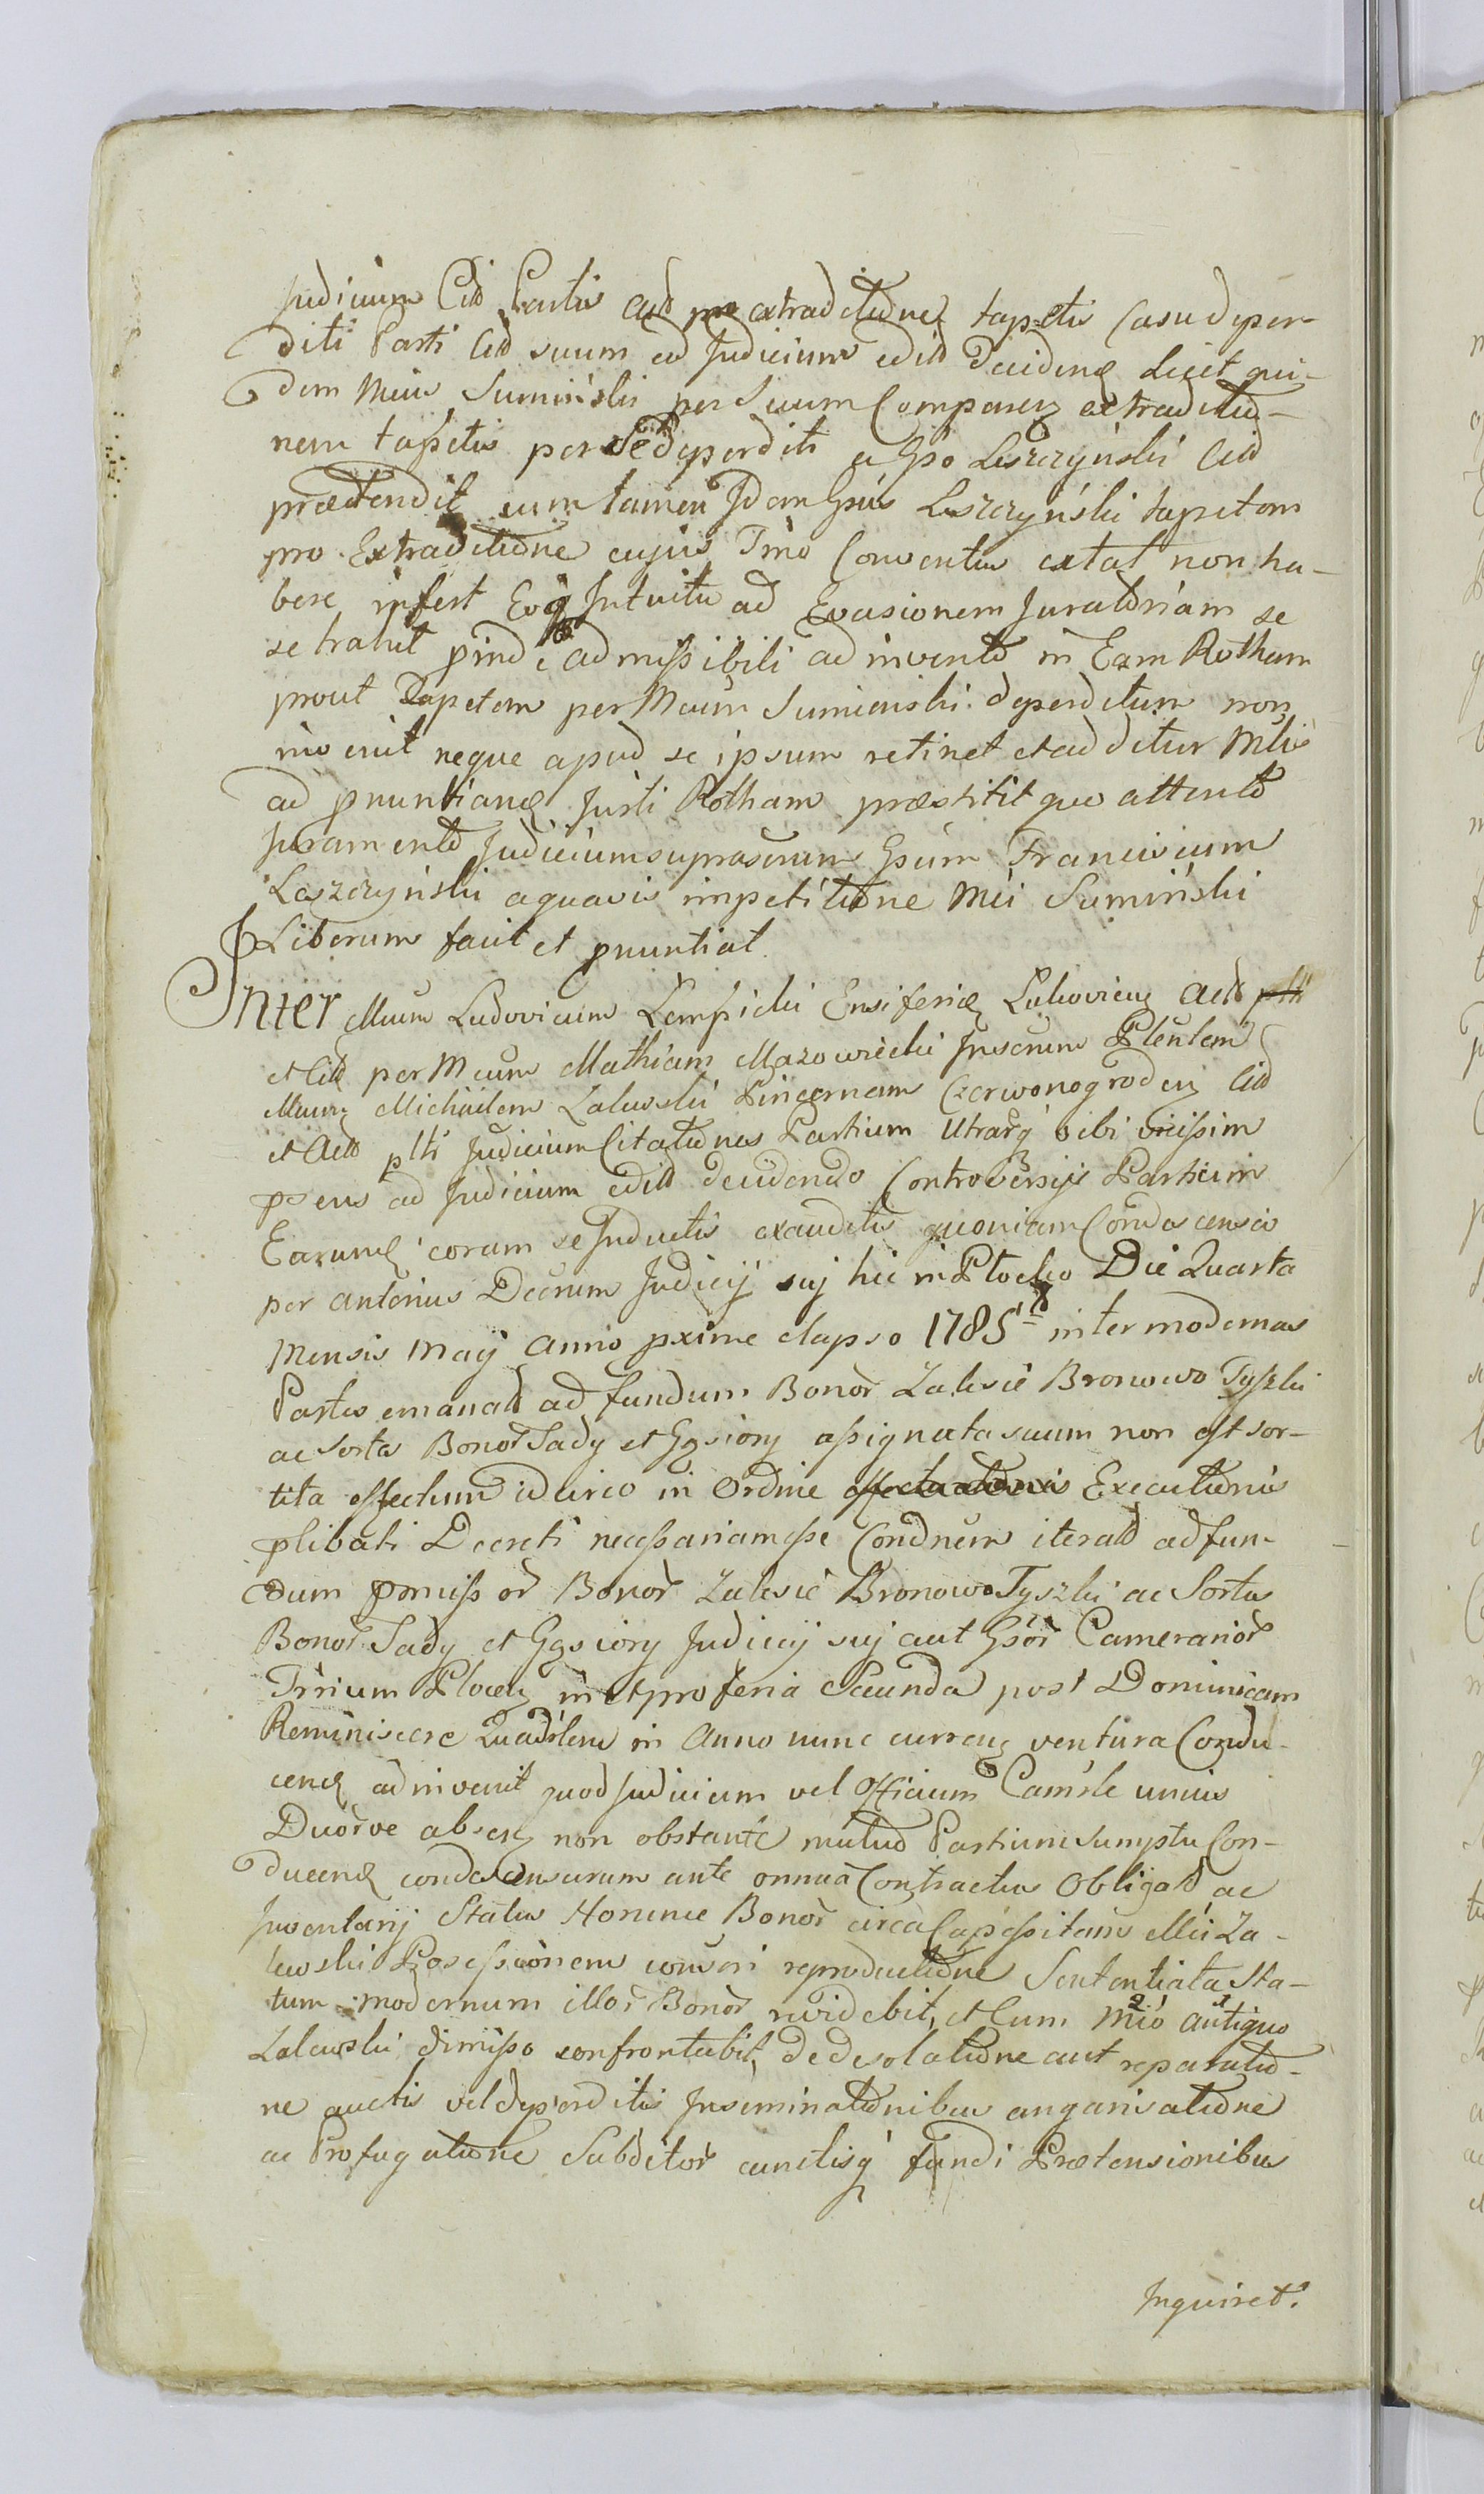 Judicium Citt Partis Actt pro extraditione tapetis casu deper-
diti Parti Citt suum ad Judicium editt Deciden Licet qui-
dem Mcus Sumiński per suum Comparen extraditio-
nem tapetis per se deperditi a Gso Leszczyński Citt
prætendit cum tamen Idem Gsus Leszczyński tapetem
pro Extraditione cujus Tmo Conventus extat non ha-
bere infert Eoq Intuitu ad Evasionem Juratoriam se
se trahit admissibili adinvento in Eam Rotham
prout Tapetem per Mcum Sumienski deperditum non
invenit neque apud se ipsum retinet et additur Mtis
ad pnuntian Jurti Rotham præstititque attento
Juramento Judicium suprascrum Gsum Franciscum
Leszczyński a quavis impetitione Mci Sumiński
Liberum facit et pnuntiat.
Inter Mcum Ludovicum Lempicki Ensiferiæ Lukovien Actt ptti
et Citt per Mcum Mathiam Mazowiecki Juscrum Pltentem
Mcum Michäelem Zalewski Pincernam Czerwonogroden Citt
et Actt ptti Judicium Citationes Partium Utrarq sibi vicissim
psens ad Judicium editt decidendo Controversijs Partium
Earund coram se Inductis exauditis quoniam Condescensio
per anterius Decrum Judicij suj hic in Plocko Die Quarta
Mensis Maij Anno pxime elapso 1785to inter modernas
Partes emanatt ad fundum Bonor Zalesie Bronowo Tyszki
ac Sortes Bonor Sady et Gąsiory assignata suum non est sor-
tita effectum idcirco in Ordine effectuationis Executionis
plibati Decreti necessariam esse Condnem iteratt ad fun-
dum pmissor Bonor Zalesie Bronowo Tyszki ac Sortes
Bonor Sady et Gąsiory Judicij suj aut Gsor Camerarior
Trrium Plocen in et pro feria Secunda post Dominicam
Reminiscere Quadrlem in Anno nunc curren ventura Condu-
cend adinvenit quod Judicium vel Officium Camrle unius
Duorve absen non obstante mutuo Partium sumptu Con-
ducend condescensurum ante omnia Contractus Obligatt ac
Inventarij Status Honince Bonor circa Capessitam Mci Za-
lewski Possessionem conseri reproductione Sententiata Sta-
tum modernum illor Bonor revidebit, et Cum Mco antiquo
Zalewski dimisso confrontabit, De desolatione aut reparatio-
ne auctis vel deperditis Inseminationibus angarisatione
ac Profugatione Subditor cunctisq fundi Prætensionibus
Inquiret.